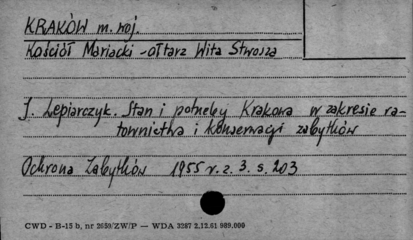 KRAKÓW m. woj.
Kościół Mariacki - ołtarz Wita Stwosza
J. Lepiarczyk. Stan i potrzeby Krakowa w zakresie ra-
townictwa i konserwacji zabytków
Ochrona Zabytków 1955 r. z. 3. s. 203
CWD - B-15 b, nr 2659/ZW/P — WDA 3287 2.12.61 989.000